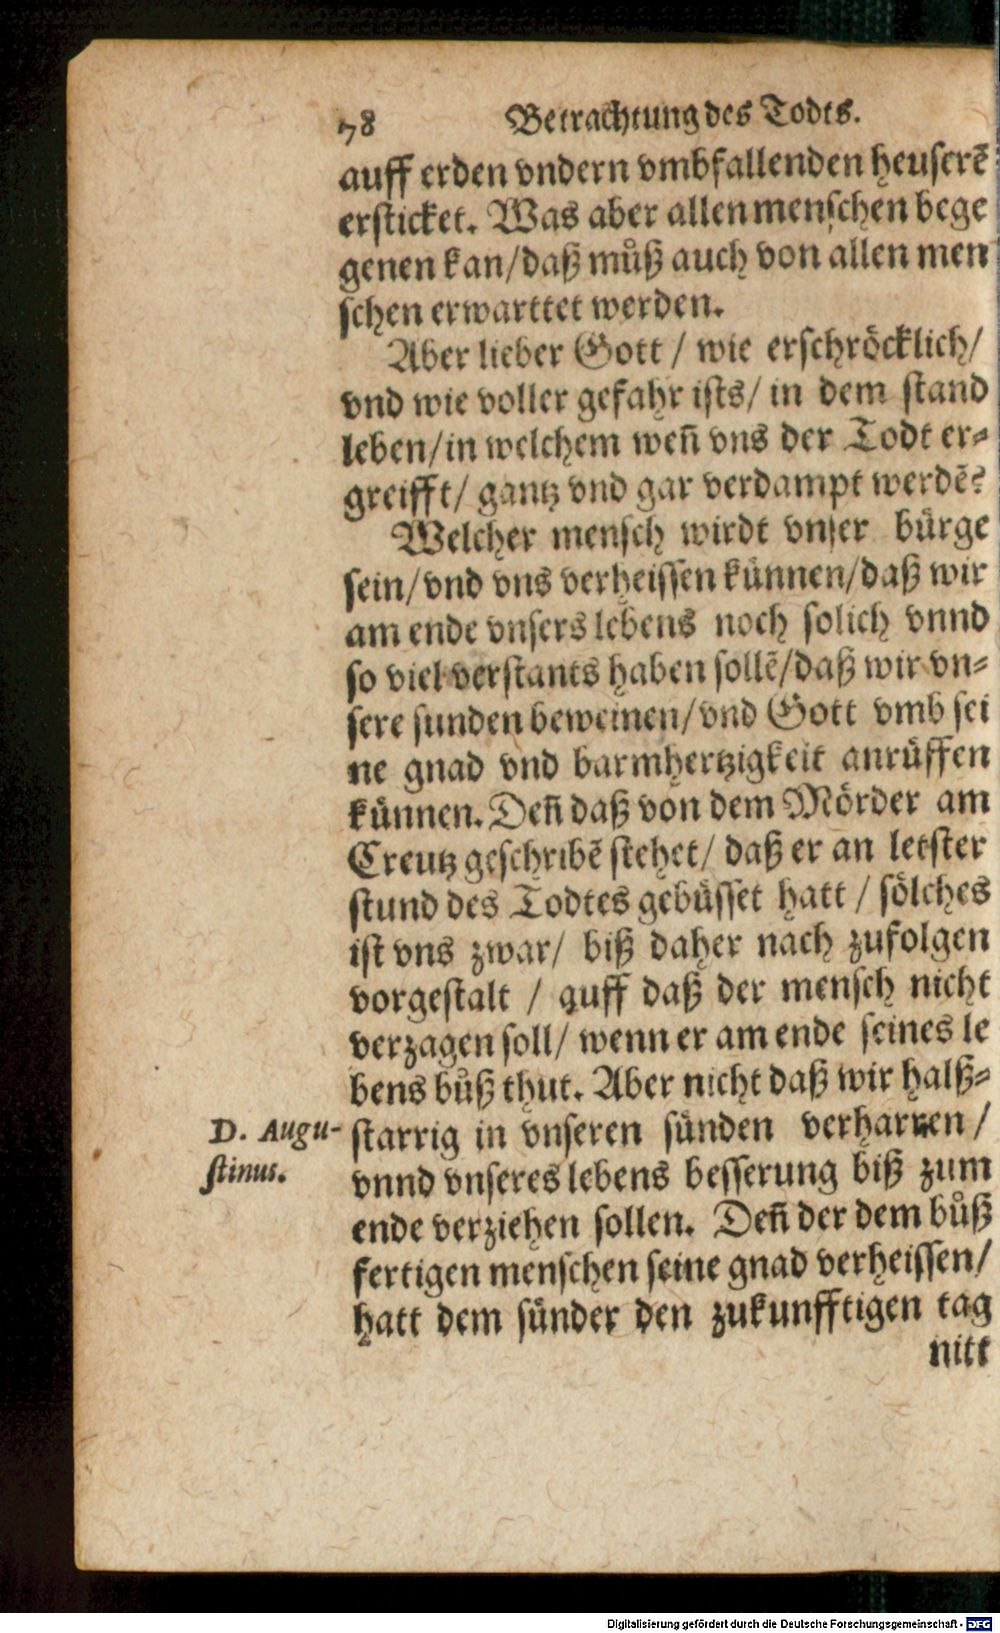 78 Betrachtung des Todts.
auff erden vndern vmbfallenden heuserẽ
ersticket. Was aber allen menschen bege
genen kan/daß můß auch von allen men
schen erwarttet werden.
Aber lieber Gott / wie erschröcklich/
vnd wie voller gefahr ists/ in dem stand
leben/in welchem weñ vns der Todt er⸗
greifft/ gantz vnd gar verdampt werdẽ?
Welcher mensch wirdt vnser bürge
sein/vnd vns verheissen künnen/daß wir
am ende vnsers lebens noch solich vnnd
so viel verstants haben sollẽ/daß wir vn⸗
sere sunden beweinen/vnd Gott vmb sei
ne gnad vnd barmhertzigkeit anrüffen
künnen. Deñ daß von dem Mörder am
Creutz geschribẽ stehet/ daß er an letster
stund des Todtes gebüsset hatt / sölches
ist vns zwar/ biß daher nach zufolgen
vorgestalt / auff daß der mensch nicht
verzagen soll/ wenn er am ende seines le
bens bůß thut. Aber nicht daß wir halß⸗
starrig in vnseren sünden verharren /
vnnd vnseres lebens besserung biß zum
ende verziehen sollen. Deñ der dem bůß
fertigen menschen seine gnad verheissen/
hatt dem sünder den zukunfftigen tag
nitt
D. Augu-
stinus.
Digitalisierung gefördert durch die Deutsche Forschungsgemeinschaft - DFG